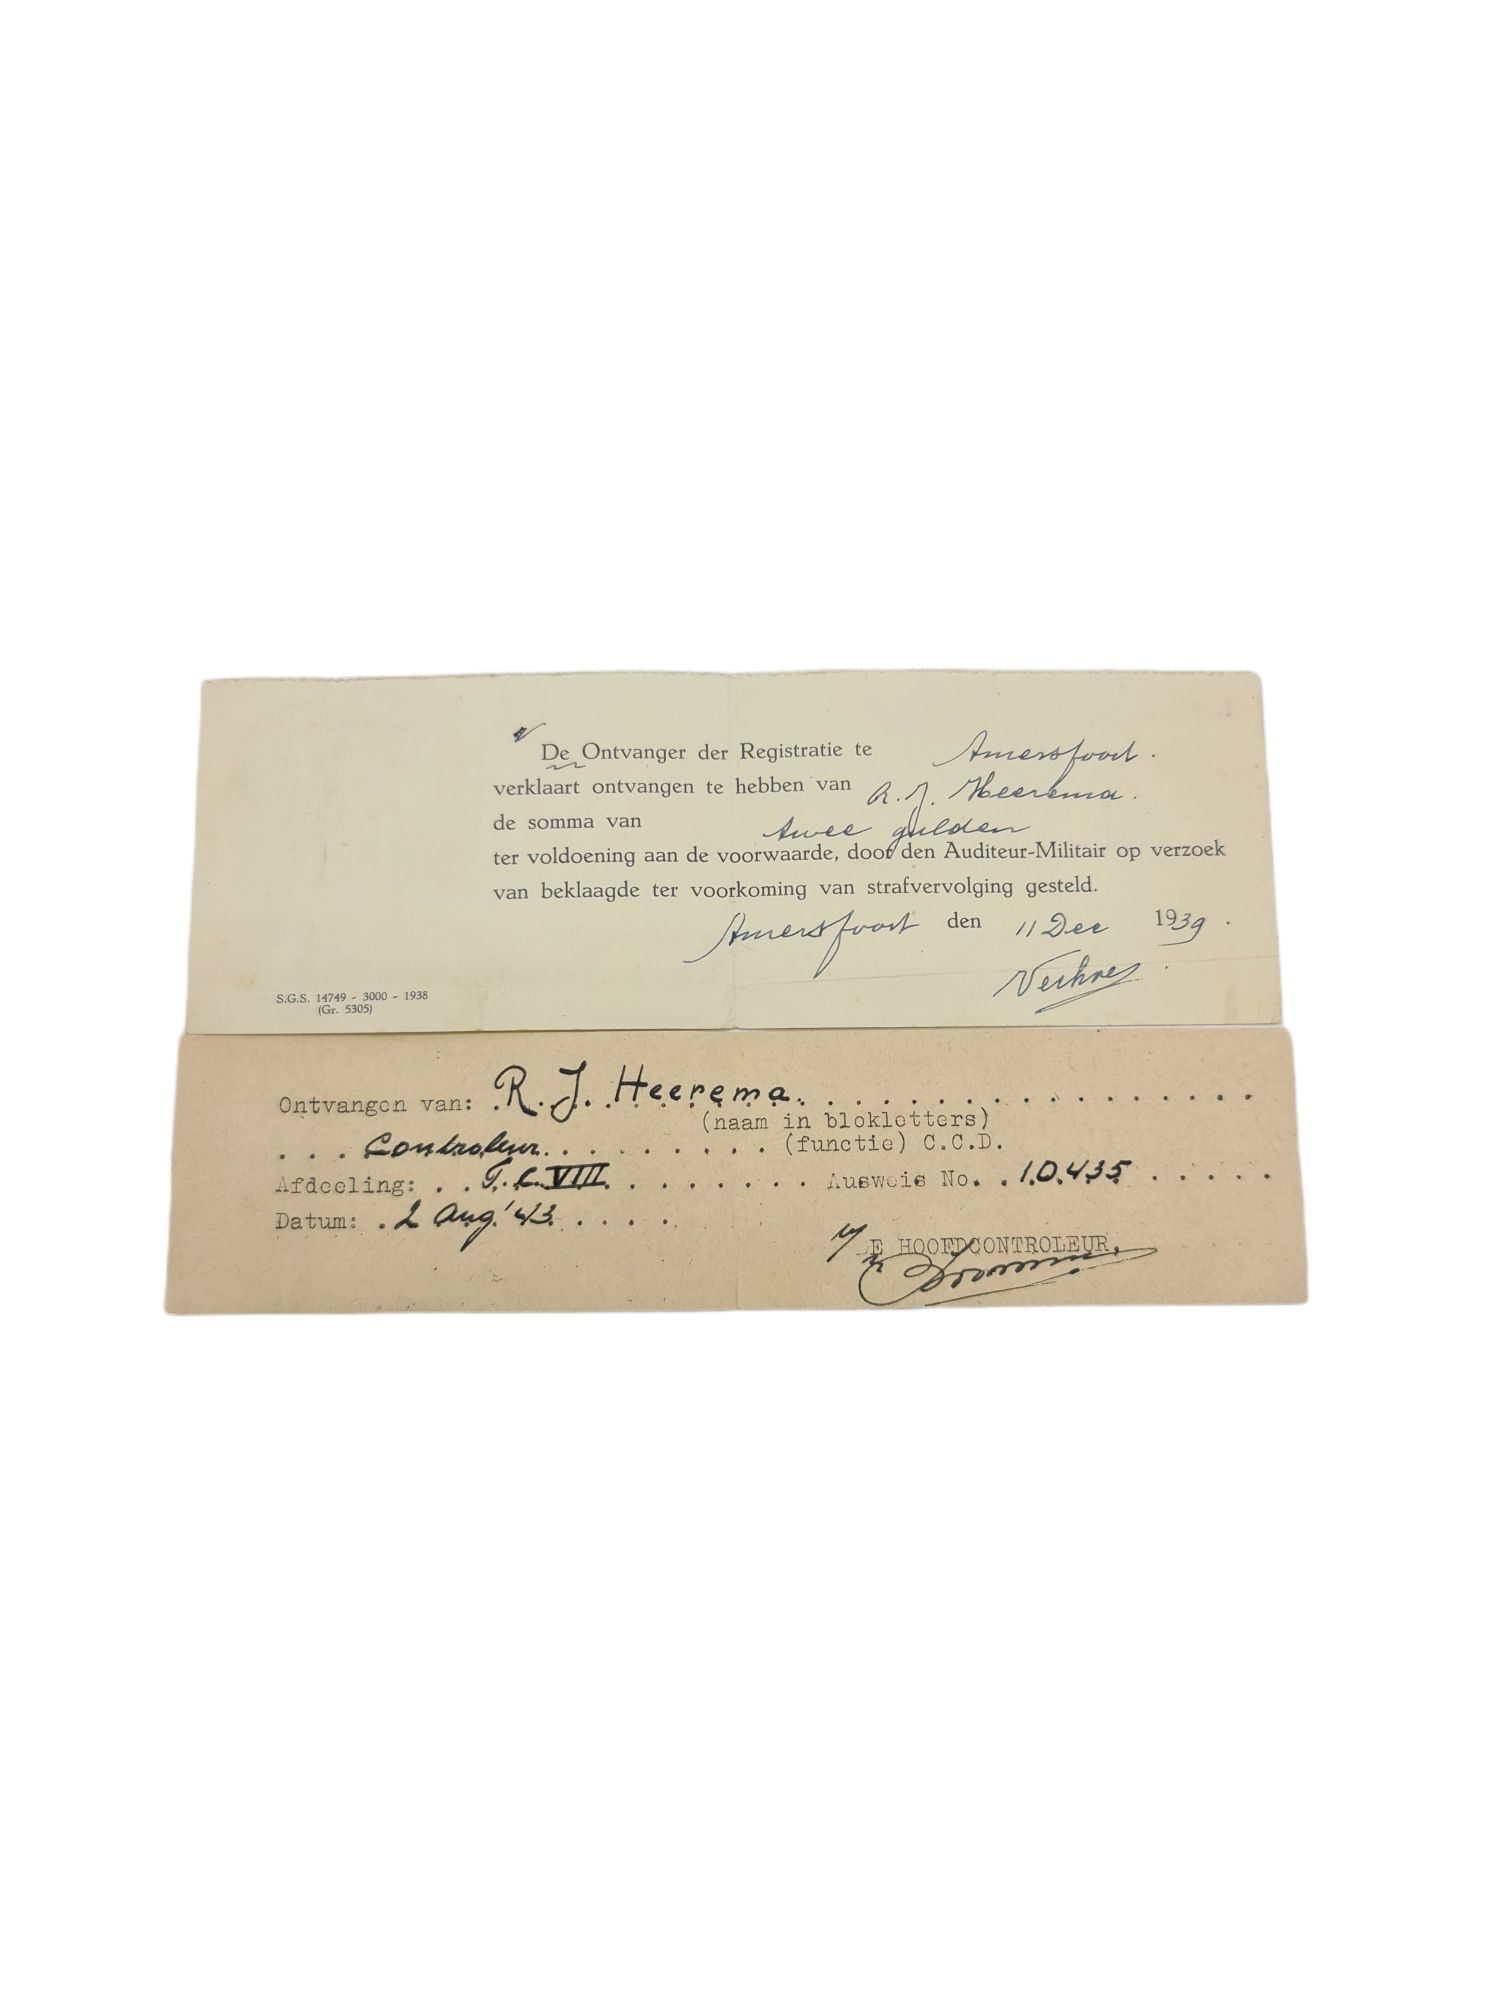 De Ontvanger der Registratie te Amersfoort.
verklaart ontvangen te hebben van R. J. Heerema.
de somma van twee gulden
ter voldoening aan de voorwaarde, door den Auditeur-Militair op verzoek
van beklaagde ter voorkoming van strafvervolging gesteld.
Amersfoort den 11 Dec 1939.
S.G.S. 14749 - 3000 - 1938
(Gr. 5305)
Ontvangen van: R. J. Heerema.
(naam in blokletters)
Controleur (functie) C.C.D.
Afdeeling: T.C. VIII Ausweis No. 10.435
Datum: 2 Aug.'43
E HOOFDCONTROLEUR,